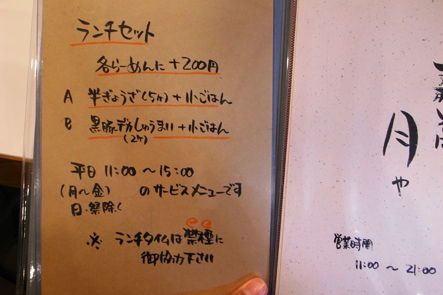 ランチセット
各らーめんに+200円
A 半ぎょうざ(5ヶ)+小ごはん
B 黒豚デカしゅうまい+小ごはん
(2ヶ)
平日 11:00～15:00
(月～金) のサービスメニューです
日・祭除く
※ ランチタイムは禁煙に
御協力下さい
月や
営業時間
11:00～21:00